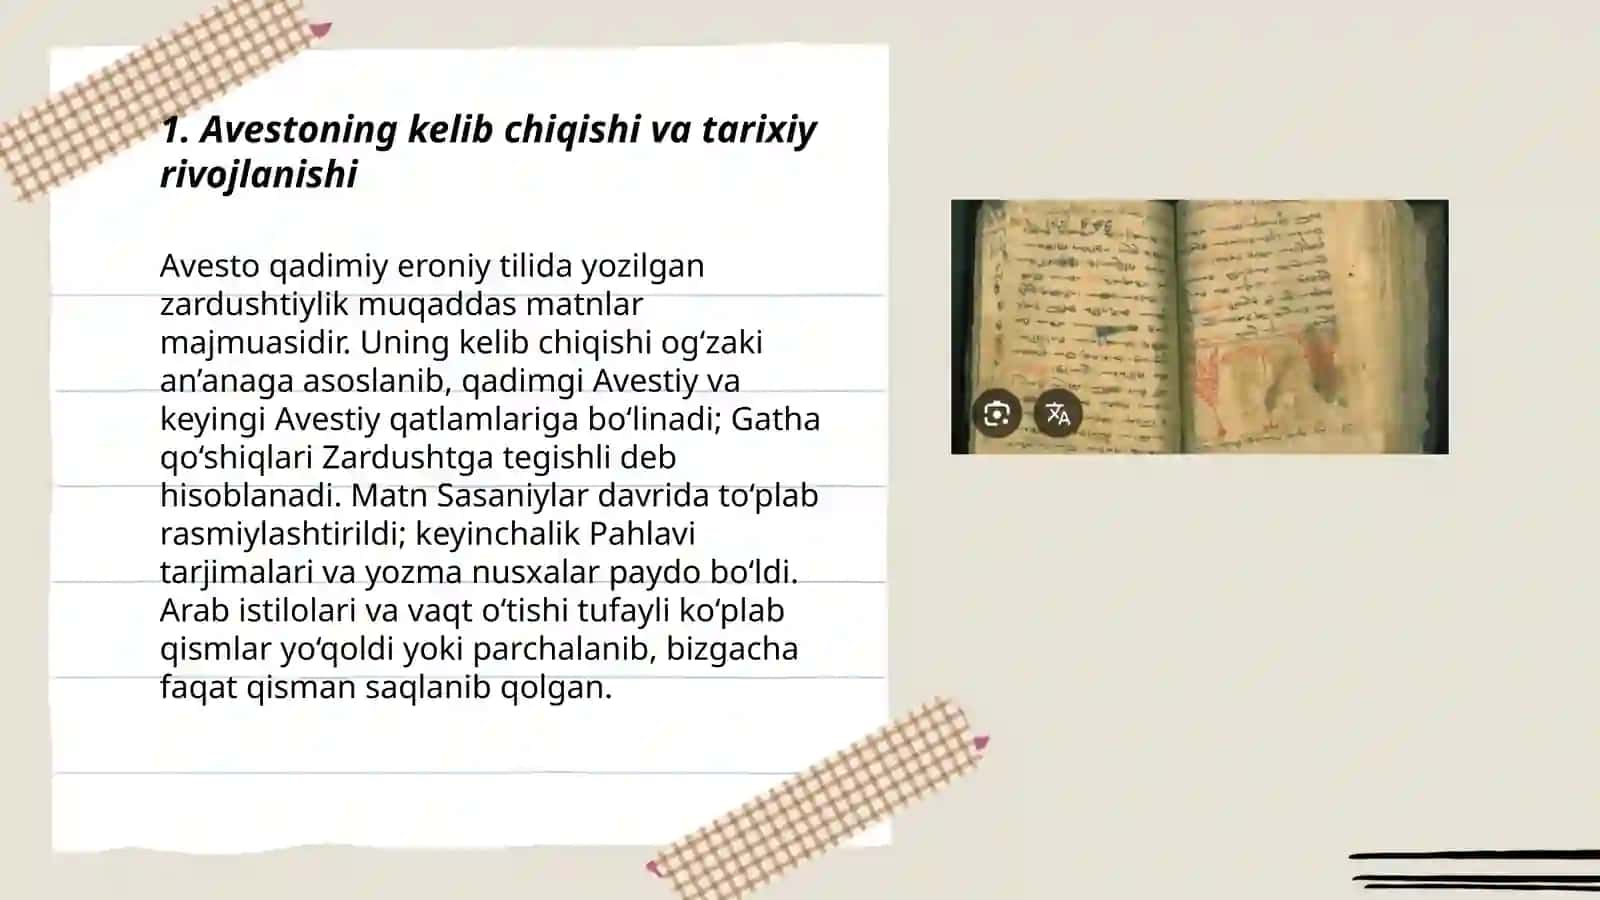 1. Avestoning kelib chiqishi va tarixiy
rivojlanishi
Avesto qadimiy eroniy tilida yozilgan
zardushtiylik muqaddas matnlar
majmuasidir. Uning kelib chiqishi og‘zaki
an’anaga asoslanib, qadimgi Avestiy va
keyingi Avestiy qatlamlariga bo‘linadi; Gatha
qo‘shiqlari Zardushtga tegishli deb
hisoblanadi. Matn Sasaniylar davrida to‘plab
rasmiylashtirildi; keyinchalik Pahlavi
tarjimalari va yozma nusxalar paydo bo‘ldi.
Arab istilolari va vaqt o‘tishi tufayli ko‘plab
qismlar yo‘qoldi yoki parchalanib, bizgacha
faqat qisman saqlanib qolgan.